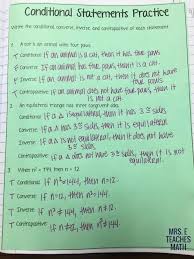 Conditional Statements Practice
Write the conditional, converse, inverse, and contrapositive of each statement.
1. A cat is an animal with four paws.
T Conditional: If an animal is a cat, then it has four paws.
F Converse: If an animal has four paws, then it is a cat.
F Inverse: If an animal is not a cat, then it does not have four paws.
T Contrapositive: If an animal does not have four paws, then it is not a cat.
2. An equilateral triangle has three congruent sides.
T Conditional: If a △ is equilateral, then it has 3 ≅ sides.
T Converse: If a △ has 3 ≅ sides, then it is equilateral.
T Inverse: If a △ is not equilateral, then it does not have 3 ≅ sides.
T Contrapositive: If a △ does not have 3 ≅ sides, then it is not equilateral.
3. When n² = 144, then n = 12.
Conditional: If n² = 144, then n = 12.
T Converse: If n = 12, then n² = 144.
T Inverse: If n² ≠ 144, then n ≠ 12.
Contrapositive: If n ≠ 12, then n² ≠ 144.
MRS. E
TEACHES
MATH